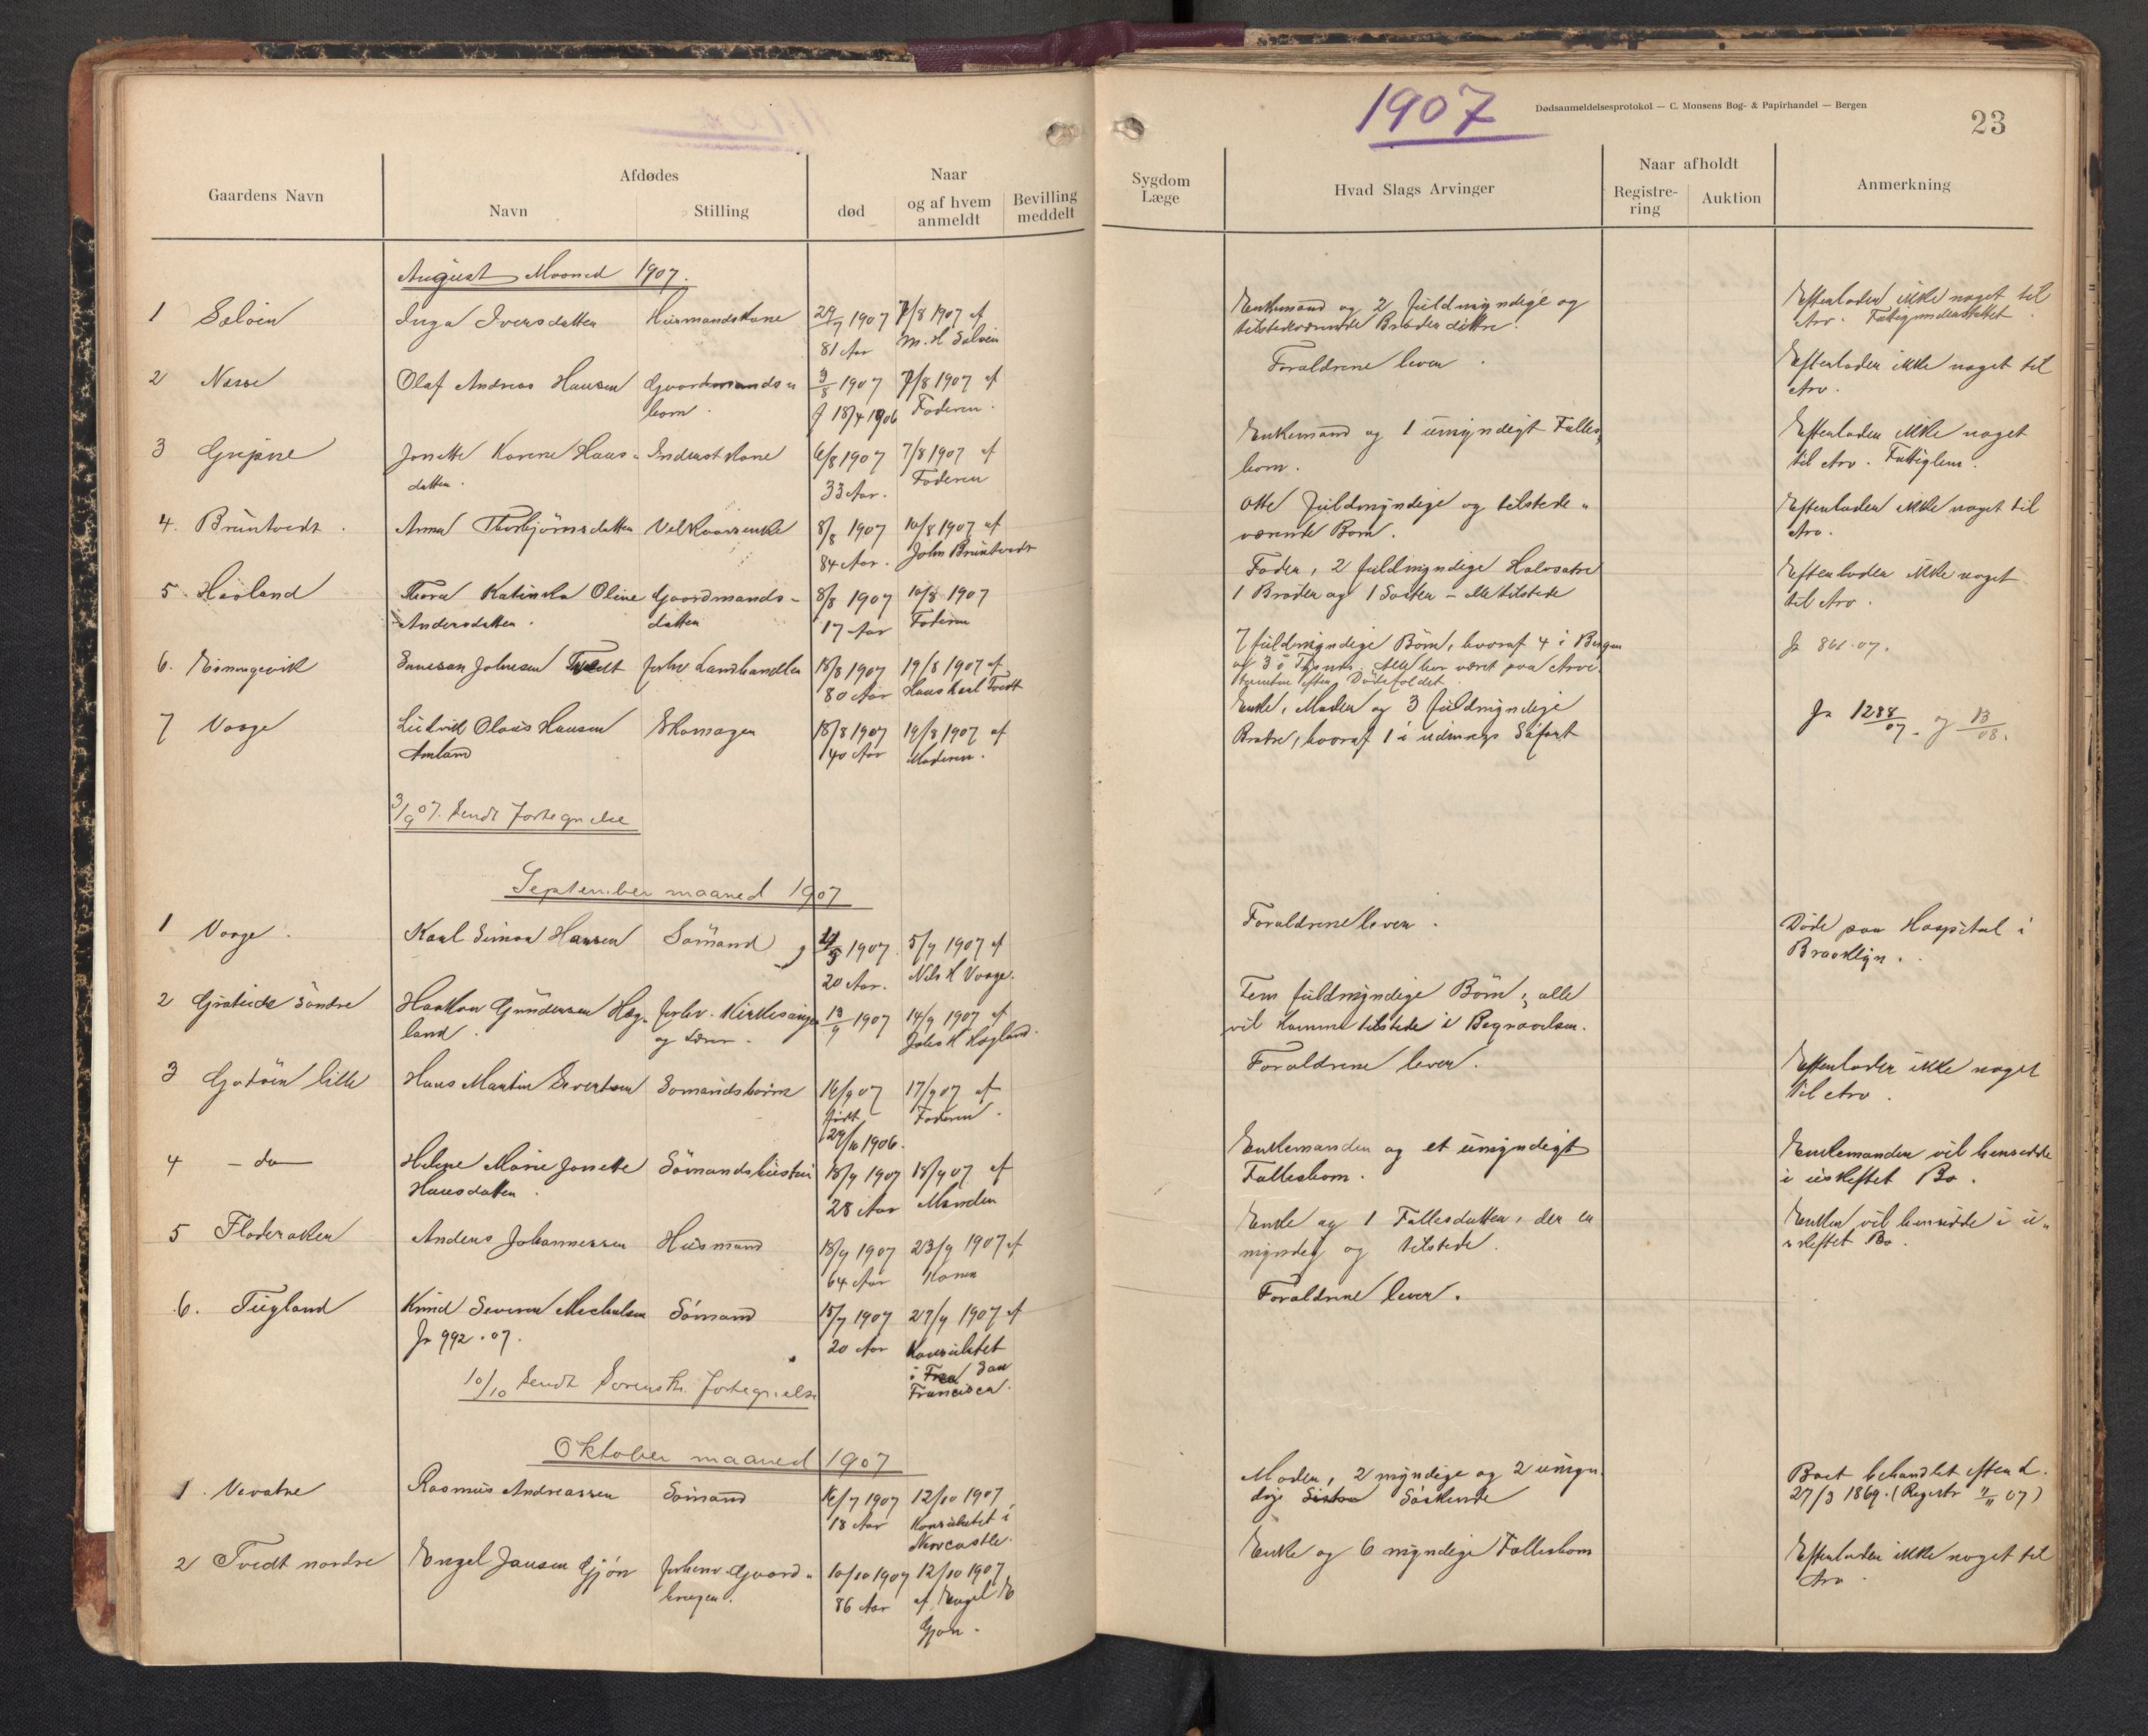 1907
Dødsanmeldelsesprotokol — C. Monsens Bog- & Papirhandel — Bergen
23
Gaardens Navn
Afdødes
Navn
Stilling
Naar
død
og af hvem anmeldt
Bevilling meddelt
Sygdom
Læge
Hvad Slags Arvinger
Naar afholdt
Registrering
Auktion
Anmerkning
August Maaned 1907.
1 Inga Iversdatter Husmandskone 29/7 1907 7/8 1907 af Enkemand og 2 fuldmyndige og Efterlader ikke noget til
81 Aar M. H tilstedeværende Broderdøttre. Arv. Fattigunderstøttet
2 Olaf Andreas Hansen Gaardmands- 3/8 1907 7/8 1907 af Forældrene lever. Efterlader ikke noget til
barn. f 18/4 1906 Faderen. Arv.
3 Jonette Karene Hans- Inderstkone 6/8 1907 7/8 1907 af Enkemand og 1 umyndigt Fælles- Efterlader ikke noget
datter. 33 Aar. Faderen barn. til Arv. Fattiglem.
4. Bruntvedt. Anna Thorbjørnsdatter 8/8 1907 10/8 1907 af Otte fuldmyndige og tilstede- Efterlader ikke noget til
84 Aar. John Bruntvedt værende Børn. Arv.
5 Høiland Thora Katinka Oline Gaardmands- 8/8 1907 10/8 1907 Fader, 2 fuldmyndige Halvsøstre Efterlader ikke noget
Andersdatter. datter 17 Aar Faderen 1 Broder og 1 Søster – alle tilstede til Arv.
6. Johnsen Tvedt forhv. Landhandler 18/8 1907 19/8 1907 af 7 fuldmyndige Børn, hvoraf 4 i Bergen Jr 861.07.
80 Aar Hans Karl Tvedt og 3 i Alle har været paa
efter Dødsfaldet.
7 Vaage Ludvik Olaus Hansen Skomager 18/8 1907 19/8 1907 af Enke, Moder og 3 fuldmyndige Jr 1288/07. og 13/08.
Amland 40 Aar Moderen. Brødre, hvoraf 1 i udenrigs Søfart
3/9 07. Sendt fortegnelse
September maaned 1907
1 Vaage. Karl Simon Hansen Sømand 1907. 5/9 1907 af Forældrene lever. Døde paa Hospital i
20 Aar. Nils H Vaage. Brooklyn.
2 Søndre Haakon Gundersen Hæg- forhv. Kirkesanger 13/9 1907 14/9 1907 af Fem fuldmyndige Børn; alle
land. og Lærer. H Hægland. vil komme tilstede i Begravelsen.
3 lille Hans Martin Sivertsen Sømandsbarn 16/9 07 17/9 07 af Forældrene lever. Efterlader ikke noget
født Faderen. til Arv.
29/10 1906.
4 – do – Helene Marie Jonette Sømandshustru 18/9 1907 18/9 07 af Enkemanden og et umyndigt Enkemanden vil hensidde
Hansdatter. 28 Aar Manden Fællesbarn. i uskiftet Bo.
5 Anders Johannessen Husmand 18/9 1907 23/9 1907 af Enke og 1 Fællesdatter, der er Enken vil hensidde i u-
64 Aar Konen myndig og tilstede. skiftet Bo.
6. Tugland Knud Severin Michelsen Sømand 15/7 1907 27/9 1907 af Forældrene lever.
Jr 992.07. 20 Aar Konsulatet
i San
Francisco.
10/10 Sendt Sorenskr. fortegnelse
Oktober maaned 1907
1. Rasmus Andreassen Sømand 16/7 1907 12/10 1907, Moder, 2 myndige og 2 umyn- Boet behandlet efter L.
18 Aar Konsulatet i dige Søskende 27/3 1869. (Registr 11/11 07)
Newcastle.
2 Tvedt nordre Engel Jansen Gjøn forhenv. Gaard- 10/10 1907 12/10 1907 Enke og 6 myndige Fællesbørn Efterlader ikke noget til
bruger. 86 Aar af Engel E Arv
Gjøn.